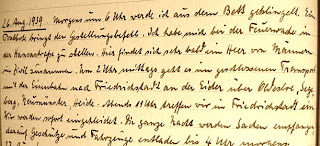 26. Aug. 1939 Morgens um 6 Uhr werde ich aus dem Bett geklingelt. Ein
bringt den Gestellungsbefehl. Ich habe mich bei der Feuerwache in
der zu stellen. Hier findet sich sehr bald ein Heer von Männern
in Zivil zusammen. Um 2 Uhr mittags geht es im geschlossenen Transport
mit der Eisenbahn nach Friedrichstadt an der Eider über Oldesloe, Sege-
berg, Neumünster, Heide. Abends 11 Uhr treffen wir in Friedrichstadt ein
Wir werden sofort eingekleidet. Die ganze Nacht werden Sachen empfangen
darauf Geschütze und Fahrzeuge entladen bis 4 Uhr morgens.